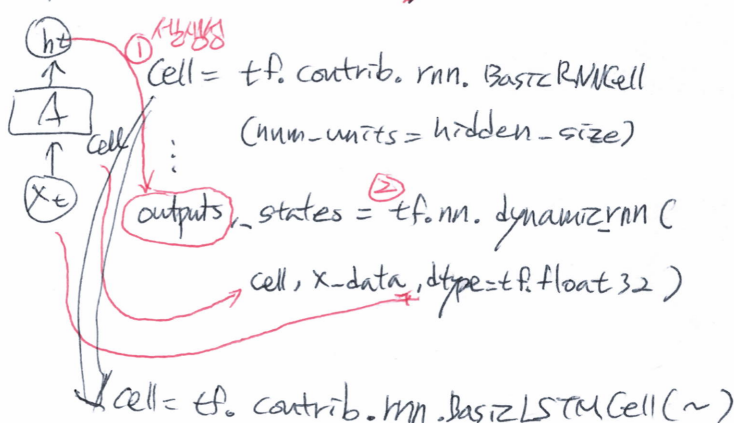 ht
① 셀생성
Cell = tf. contrib. rnn. BasicRNNCell
A
(num_units = hidden_size)
Cell
⋮
xt
outputs, _states = ② tf.nn. dynamic_rnn (
cell, x_data, dtype=tf.float32 )
cell = tf. contrib. rnn. BasicLSTMCell (~)